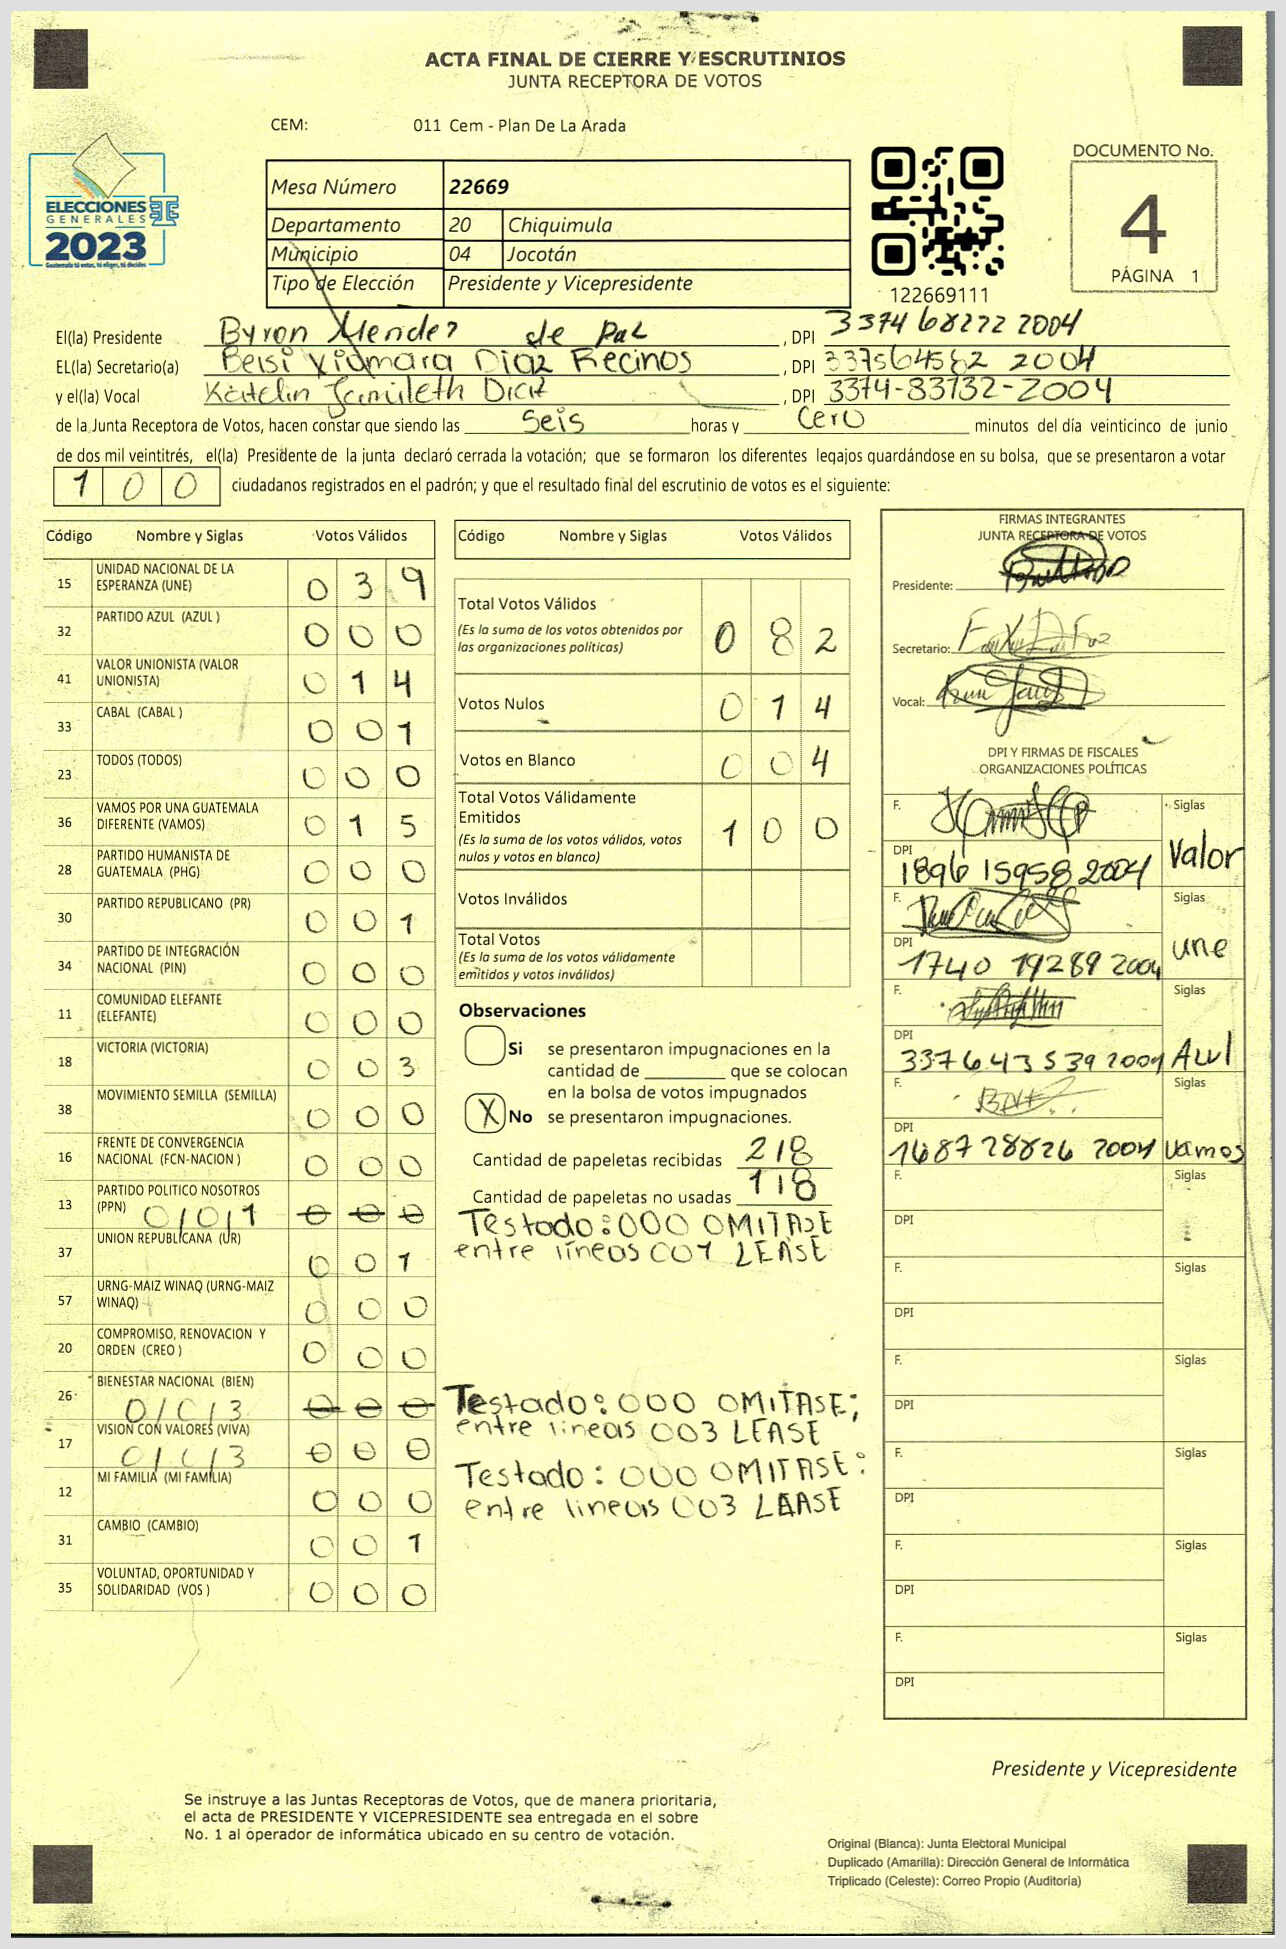 ACTA FINAL DE CIERRE Y ESCRUTINIOS
JUNTA RECEPTORA DE VOTOS
CEM: 011 Cem - Plan De La Arada
ELECCIONES
GENERALES
2023
Guatemala tú votas, tú eliges, tú decides
Mesa Número 22669
Departamento 20 Chiquimula
Municipio 04 Jocotán
Tipo de Elección Presidente y Vicepresidente
122669111
DOCUMENTO No.
4
PÁGINA 1
El(la) Presidente Byron Mendez de Paz , DPI 3374 68222 2004
EL(la) Secretario(a) Beisi Xiomara Diaz Recinos , DPI 337564582 2004
y el(la) Vocal Katelin Jamileth Diaz , DPI 3374-83732-2004
de la Junta Receptora de Votos, hacen constar que siendo las seis horas y cero minutos del día veinticinco de junio
de dos mil veintitrés, el(la) Presidente de la junta declaró cerrada la votación; que se formaron los diferentes legajos guardándose en su bolsa, que se presentaron a votar
1 0 0 ciudadanos registrados en el padrón; y que el resultado final del escrutinio de votos es el siguiente:
Código Nombre y Siglas Votos Válidos
15 UNIDAD NACIONAL DE LA
ESPERANZA (UNE) 0 3 9
32 PARTIDO AZUL (AZUL ) 0 0 0
41 VALOR UNIONISTA (VALOR
UNIONISTA) 0 1 4
33 CABAL (CABAL ) 0 0 1
23 TODOS (TODOS) 0 0 0
36 VAMOS POR UNA GUATEMALA
DIFERENTE (VAMOS) 0 1 5
28 PARTIDO HUMANISTA DE
GUATEMALA (PHG) 0 0 0
30 PARTIDO REPUBLICANO (PR) 0 0 1
34 PARTIDO DE INTEGRACIÓN
NACIONAL (PIN) 0 0 0
11 COMUNIDAD ELEFANTE
(ELEFANTE) 0 0 0
18 VICTORIA (VICTORIA) 0 0 3
38 MOVIMIENTO SEMILLA (SEMILLA) 0 0 0
16 FRENTE DE CONVERGENCIA
NACIONAL (FCN-NACION ) 0 0 0
13 PARTIDO POLITICO NOSOTROS
(PPN) 0/0/1 0 0 0
37 UNION REPUBLICANA (UR) 0 0 1
57 URNG-MAIZ WINAQ (URNG-MAIZ
WINAQ) 0 0 0
20 COMPROMISO, RENOVACION Y
ORDEN (CREO ) 0 0 0
26 BIENESTAR NACIONAL (BIEN)
0/0/3 0 0 0
17 VISION CON VALORES (VIVA)
0/0/3 0 0 0
12 MI FAMILIA (MI FAMILIA) 0 0 0
31 CAMBIO (CAMBIO) 0 0 1
35 VOLUNTAD, OPORTUNIDAD Y
SOLIDARIDAD (VOS ) 0 0 0
Código Nombre y Siglas Votos Válidos
Total Votos Válidos
(Es la suma de los votos obtenidos por
las organizaciones políticas) 0 8 2
Votos Nulos 0 1 4
Votos en Blanco 0 0 4
Total Votos Válidamente
Emitidos
(Es la suma de los votos válidos, votos
nulos y votos en blanco) 1 0 0
Votos Inválidos
Total Votos
(Es la suma de los votos válidamente
emitidos y votos inválidos)
Observaciones
Si se presentaron impugnaciones en la
cantidad de ________ que se colocan
en la bolsa de votos impugnados
X No se presentaron impugnaciones.
Cantidad de papeletas recibidas 218
Cantidad de papeletas no usadas 118
Testado: 000 OMITASE
entre líneas 001 LEASE
Testado: 000 OMITASE;
entre lineas 003 LEASE
Testado: 000 OMITASE:
entre lineas 003 LEASE
FIRMAS INTEGRANTES
JUNTA RECEPTORA DE VOTOS
Presidente:
Secretario:
Vocal:
DPI Y FIRMAS DE FISCALES
ORGANIZACIONES POLÍTICAS
F. Siglas
DPI 1896 15958 2004 Valor
F. Siglas
DPI 1740 19289 2004 une
F. Siglas
DPI 337643539 2004 Azul
F. Siglas
DPI 168728826 2004 Vamos
F. Siglas
DPI
F. Siglas
DPI
F. Siglas
DPI
F. Siglas
DPI
F. Siglas
DPI
F. Siglas
DPI
Presidente y Vicepresidente
Se instruye a las Juntas Receptoras de Votos, que de manera prioritaria,
el acta de PRESIDENTE Y VICEPRESIDENTE sea entregada en el sobre
No. 1 al operador de informática ubicado en su centro de votación.
Original (Blanca): Junta Electoral Municipal
Duplicado (Amarilla): Dirección General de Informática
Triplicado (Celeste): Correo Propio (Auditoría)